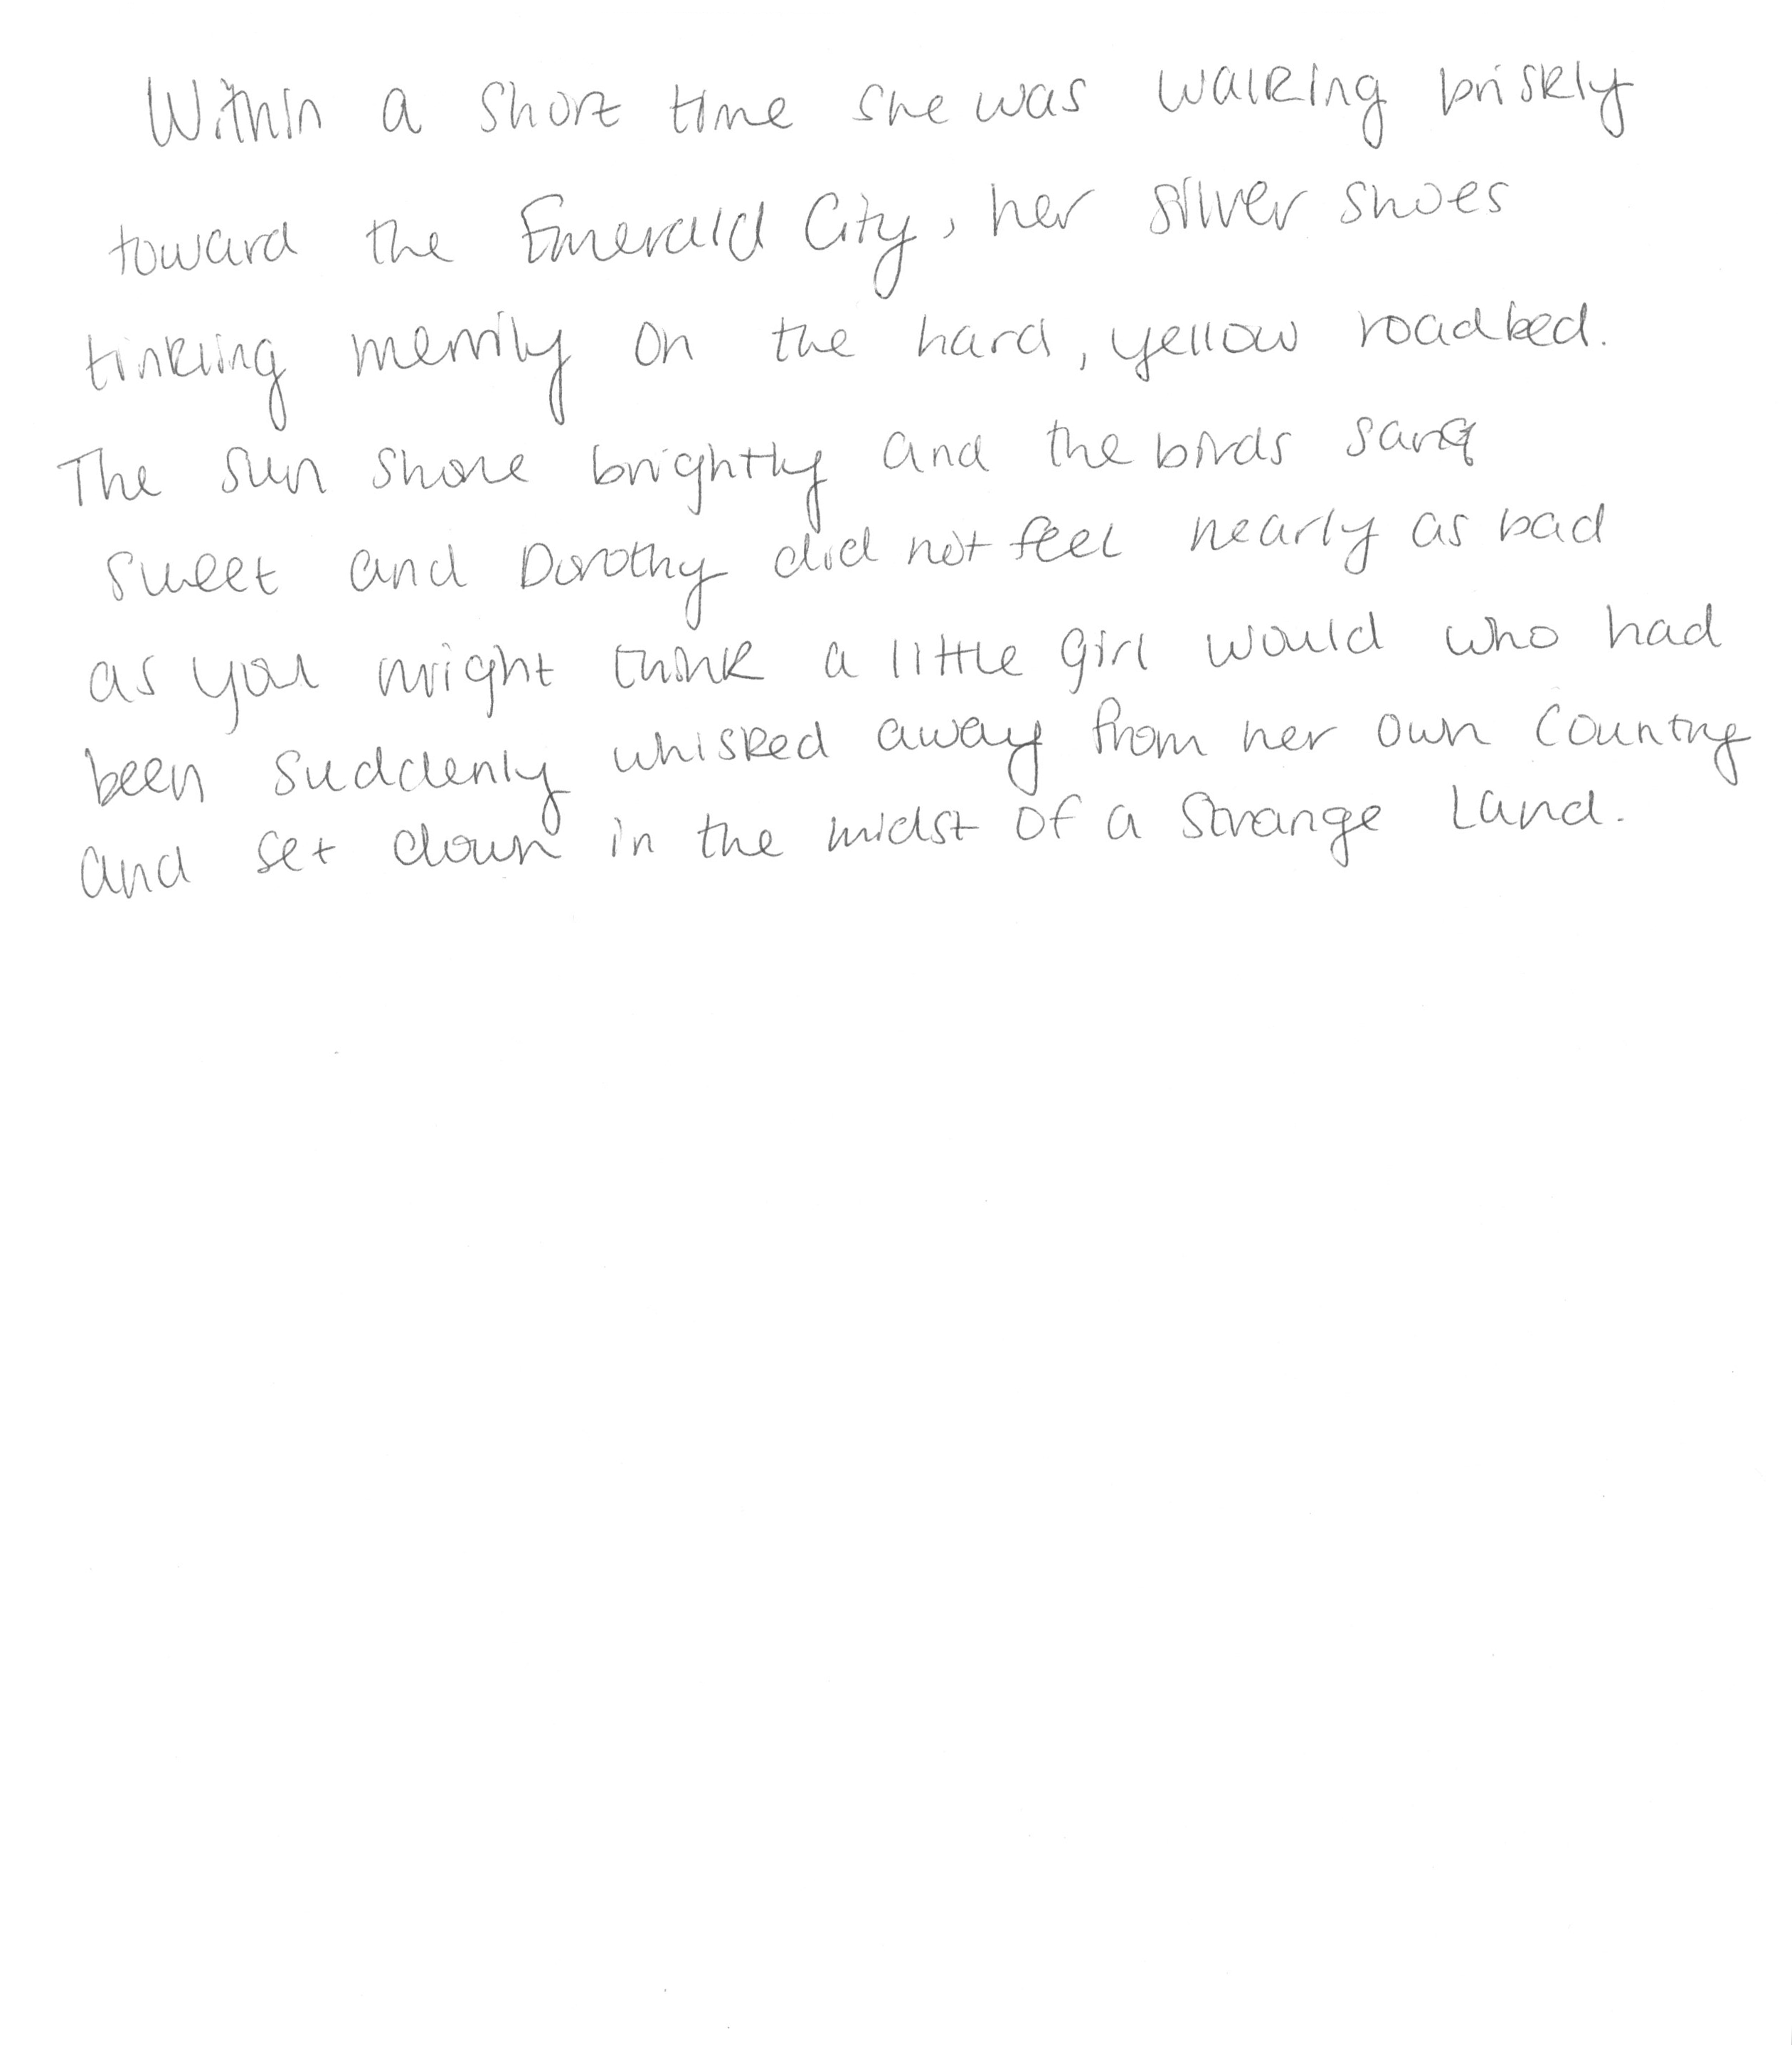 Within a short time she was walking briskly
toward the Emerald City, her silver shoes
tinkling merrily on the hard, yellow roadbed.
The sun shone brightly and the birds sang
sweet and Dorothy did not feel nearly as bad
as you might think a little girl would who had
been suddenly whisked away from her own country
and set down in the midst of a strange land.